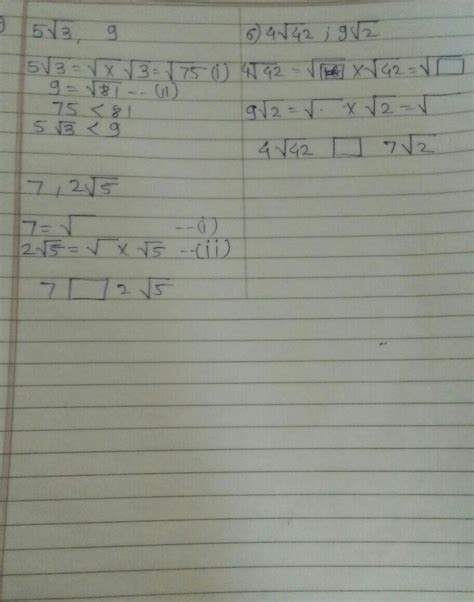 5√3, 9
5√3 = √ × √3 = √75 (i)
9 = √81 -- (ii)
75 < 81
5√3 < 9
7, 2√5
7 = √ --(i)
2√5 = √ × √5 --(ii)
7 □ 2√5
6) 4√42 ; 9√2
4√42 = √ × √42 = √□
9√2 = √ × √2 = √
4√42 □ 7√2